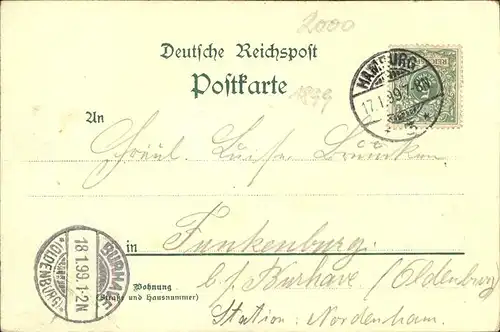 2000
Deutsche Reichspost
Postkarte
1899
HAMBURG
17.1.99.7-8N.
An
Fräul. Luise Lrücken
in Funkenburg
b/ Burhave (Oldenburg)
Wohnung
(Straße und Hausnummer)
Station: Nordenham.
BURHAVE
18|1.99.1-2N
*(OLDENBURG)*